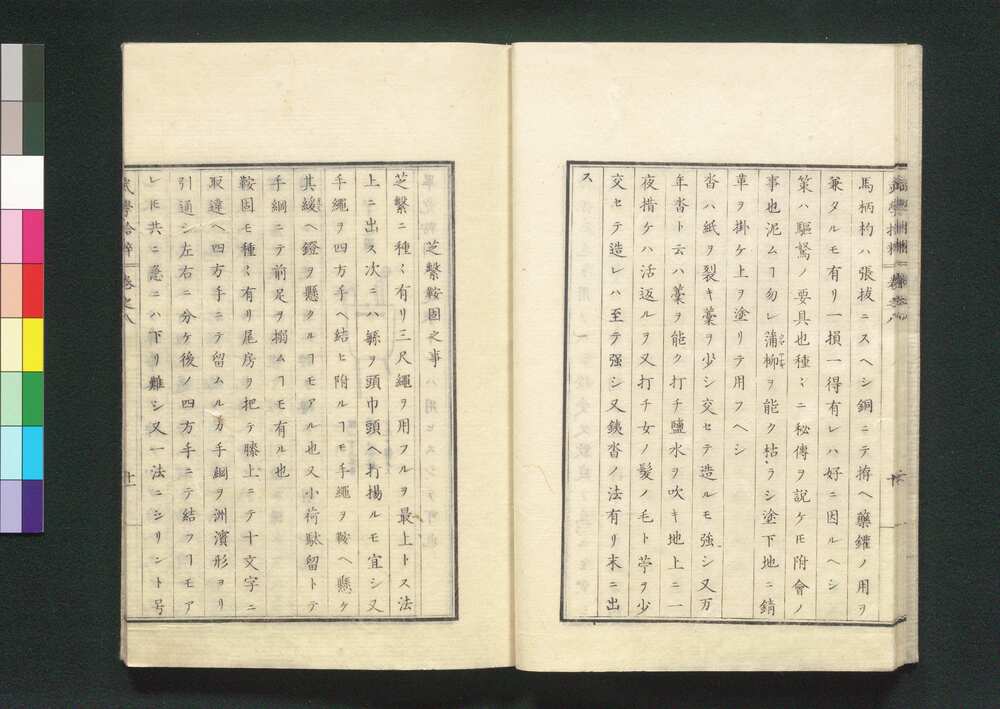 馬柄杓ハ張抜ニスヘシ銅ニテ拵ヘ藥鑵ノ用ヲ
兼タルモ有リ一損一得有レハ好ニ因ルヘシ
策ハ驅駑ノ要具也種〻ニ秘傳ヲ説ケ𪜈附會ノ
事也泥ムヿ勿レ蒲柳ヲ能ク枯ラシ塗下地ニ錆
革ヲ掛ケ上ヲ塗リテ用フヘシ
沓ハ紙ヲ裂キ藁ヲ少シ交セテ造ルモ強シ又万
年沓ト云ハ藁ヲ能ク打チ鹽水ヲ吹キ地上ニ一
夜措ケハ活返ルヲ又打チ女ノ髪ノ毛ト苧ヲ少
交セテ造レハ至テ强シ又鐵沓ノ法有リ末ニ出
ス
芝繫鞍固之事
芝繫ニ種〻有リ三尺繩ヲ用フルヲ最上トス法
上ニ出ス次ニハ綵ヲ頭巾頭ヘ打揚ルモ宜シ又
手繩ヲ四方手ヘ結ヒ附ルヿモ手繩ヲ鞍ヘ懸ケ
其緩ヘ鐙ヲ懸クルヿモアル也又小荷駄留トテ
手綱ニテ前足ヲ搦ムヿモ有ル也
鞍固モ種〻有リ尾房ヲ把テ縢上ニテ十文字ニ
取違ヘ四方手ニテ留ムル力手綱ヲ洲濱形ヨリ
引通シ左右ニ分ケ後ノ四方手ニテ結フヿモア
レ𪜈共ニ急ニハ下リ難シ又一法ニシリント号
武學拾粹 卷之八
十一